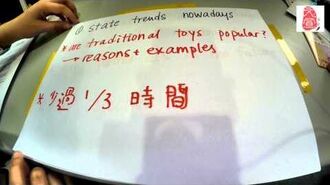 ① state trends nowadays
* are traditional toys popular?
→ reasons + examples
* 少過 1/3 時間